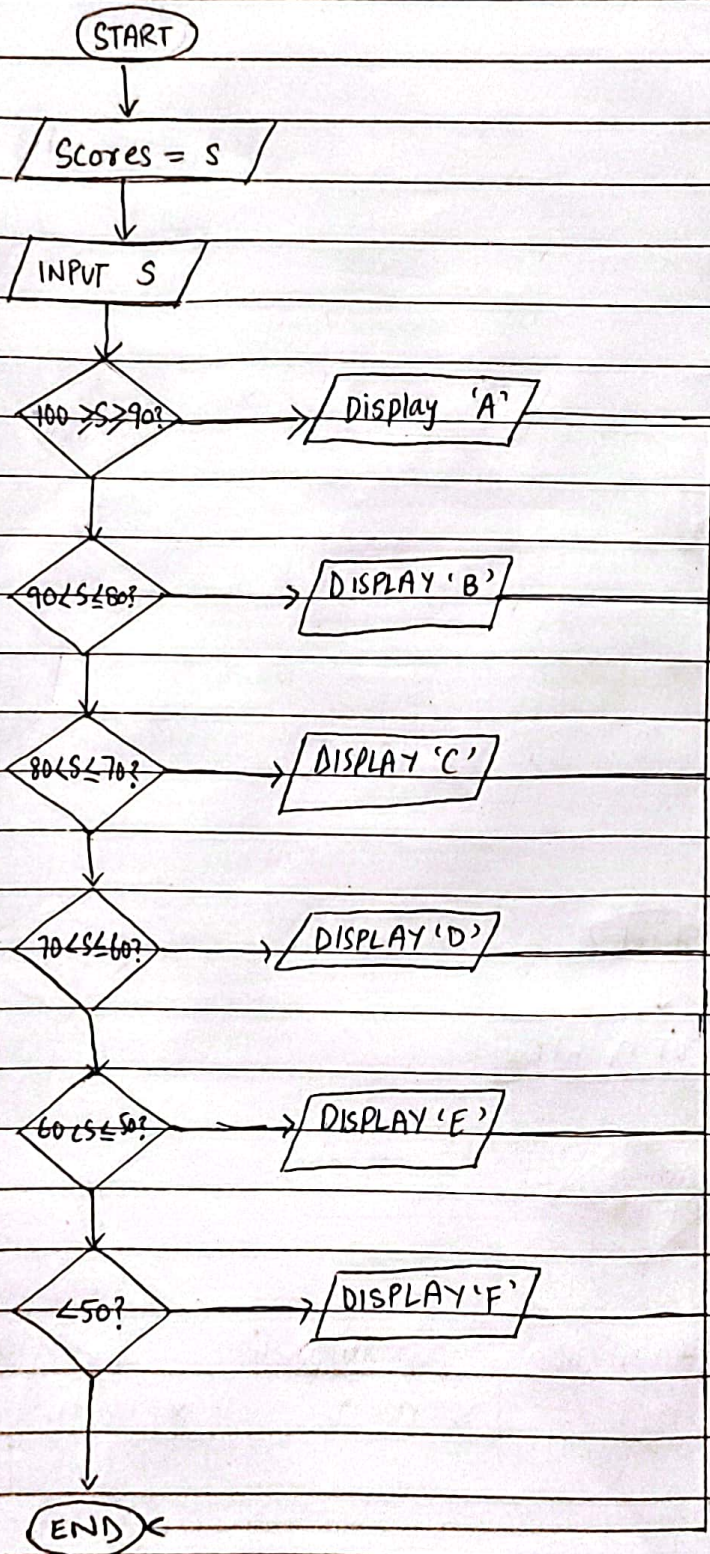 START
Scores = S
INPUT S
100 ≥ S ≥ 90?
Display 'A'
90 < S ≤ 80?
DISPLAY 'B'
80 < S ≤ 70?
DISPLAY 'C'
70 < S ≤ 60?
DISPLAY 'D'
60 < S ≤ 50?
DISPLAY 'E'
< 50?
DISPLAY 'F'
END